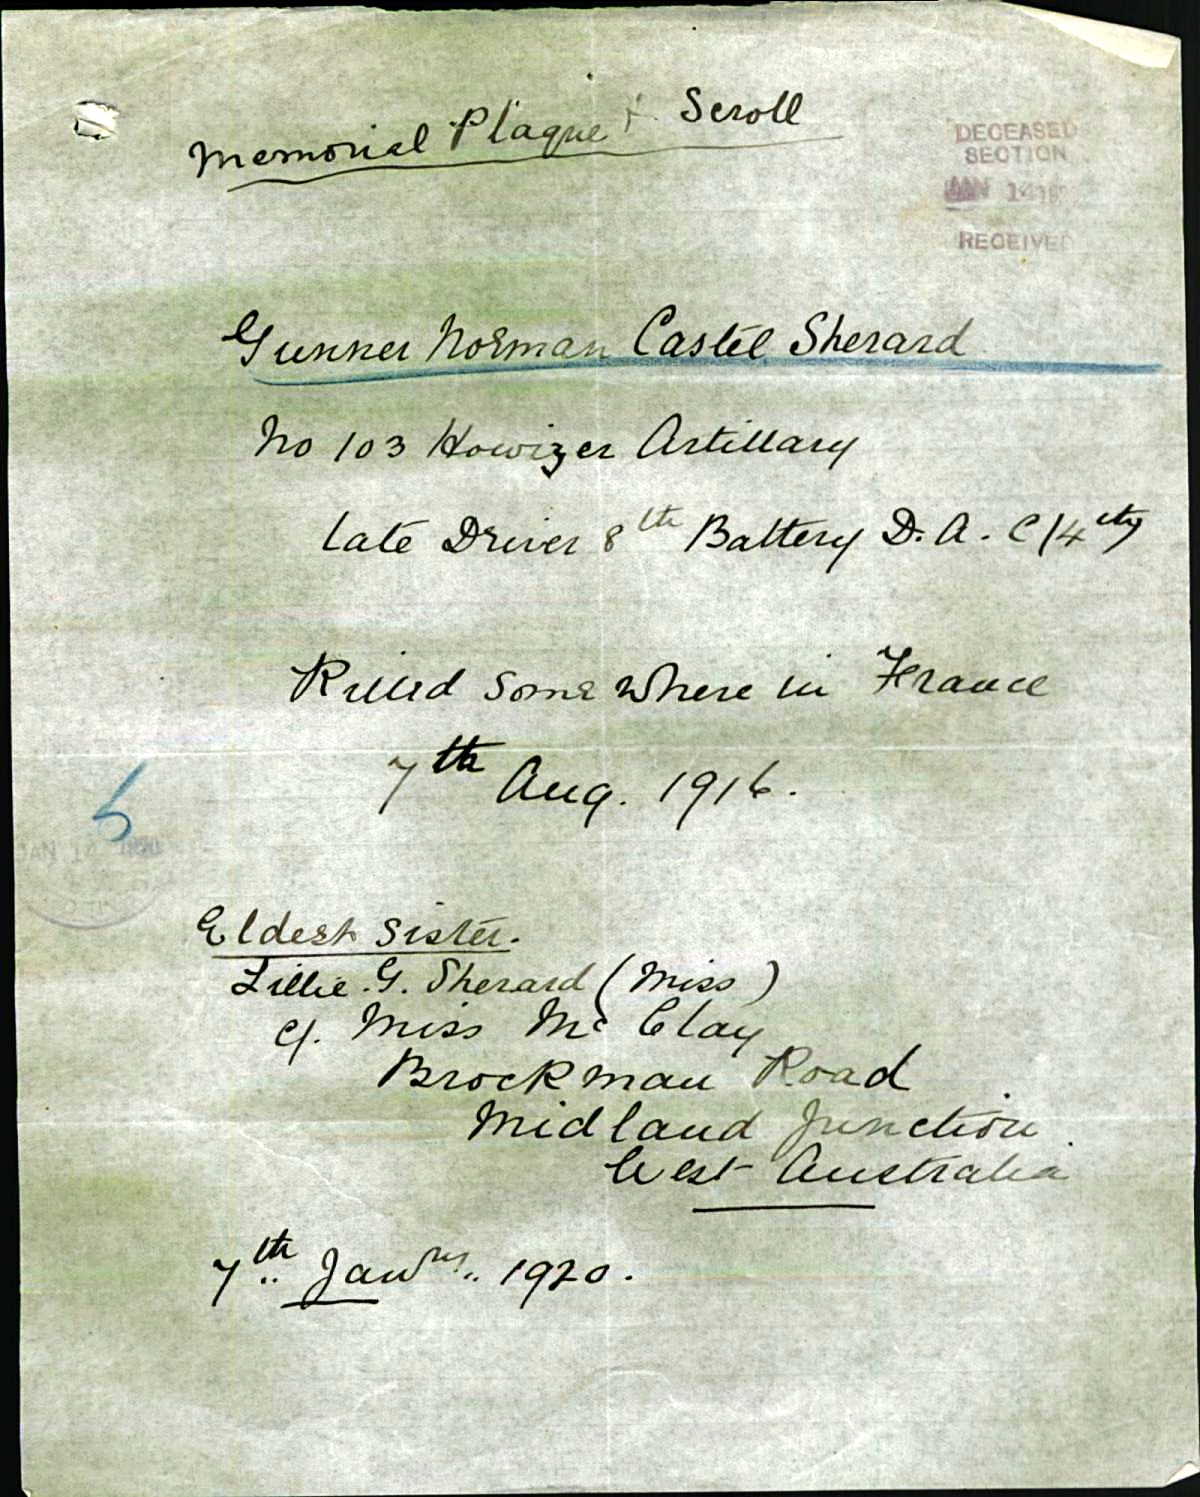 Memorial Plaque & Scroll
DECEASED
SECTION
JAN 14
RECEIVED
Gunner Norman Castel Sherard
No 103 Howizer Artillary
late Driver 8th Battery D. A. C/4
Killed Some where in France
7th Aug. 1916.
5
JAN 14
Eldest Sister.
Lillie. G. Sherard (Miss)
c/. Miss Mc Clay
Brockman Road
Midland Junction
West Australia
7th Janry.. 1920.